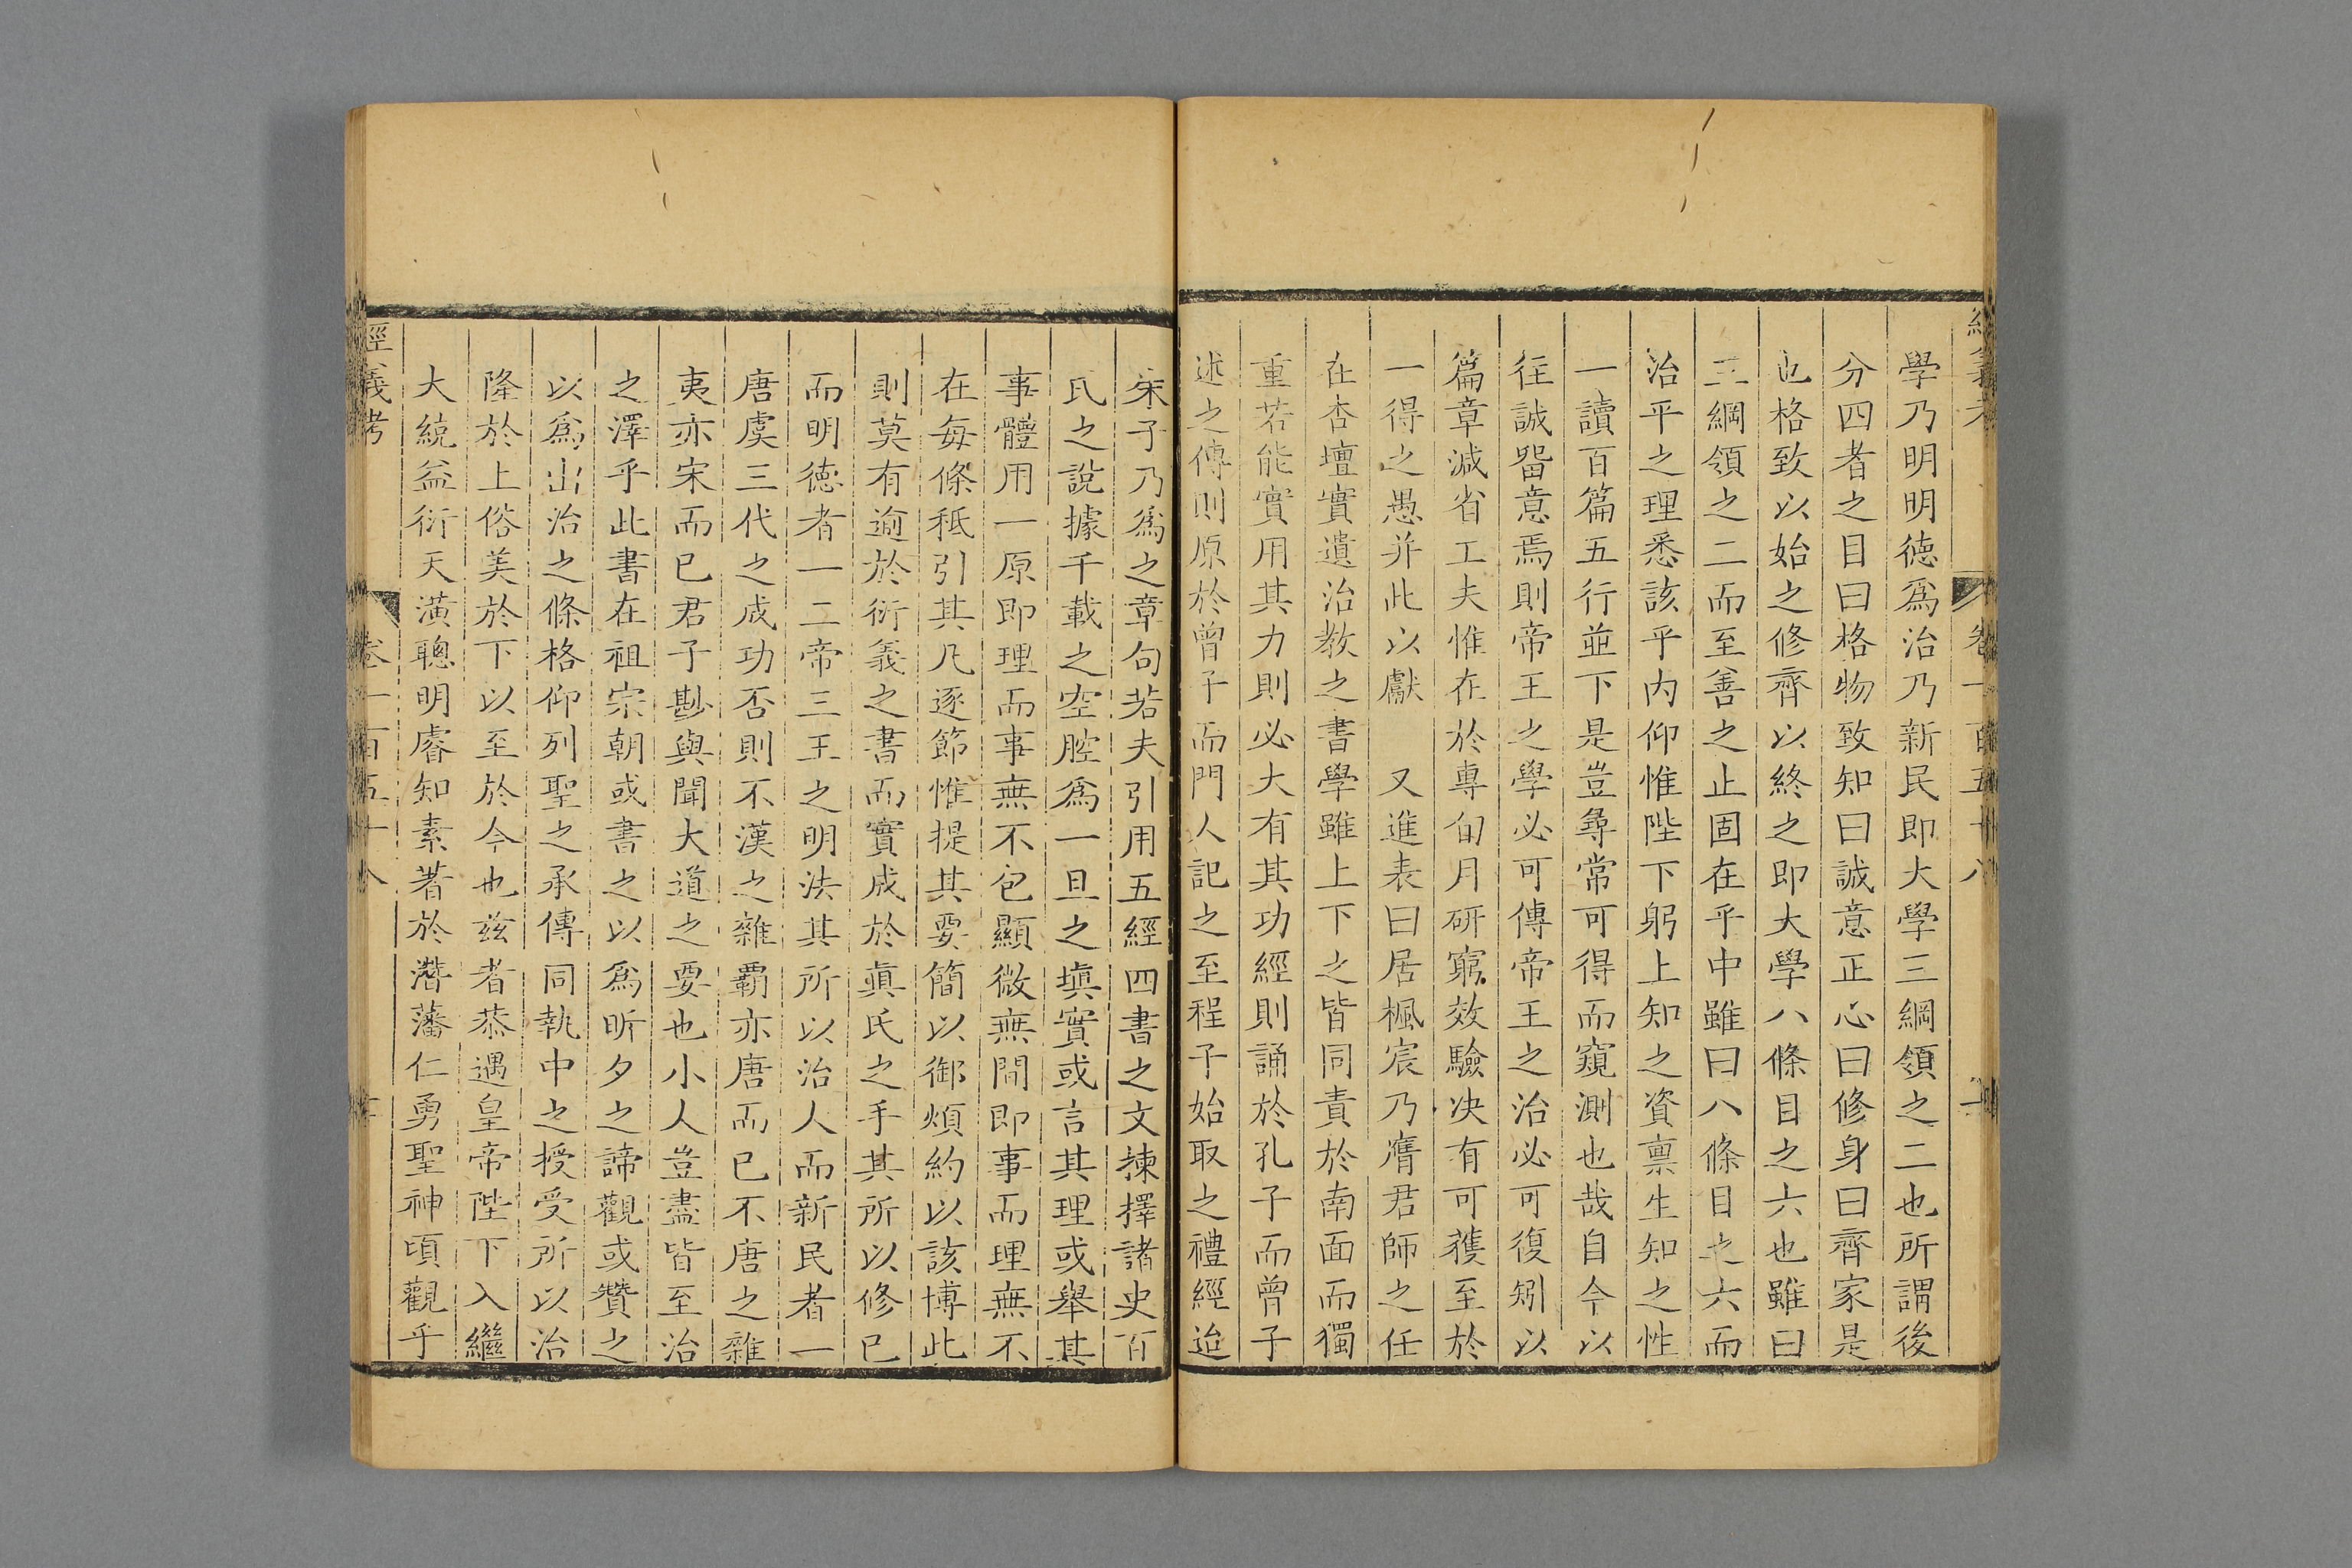 經義考 卷一百五十八
學乃明明徳爲治乃新民即大學三綱領之二也所謂後
分四者之目曰格物致知曰誠意正心曰修身曰齊家是
也格致以始之修齊以終之即大學八條目之六也雖曰
三綱領之二而至善之止固在乎中雖曰八條目之六而
治平之理悉該乎内仰惟陛下躬上知之資禀生知之性
一讀百篇五行並下是豈尋常可得而窺測也哉自今以
往誠畱意焉則帝王之學必可傳帝王之治必可復矧以
篇章減省工夫惟在於專旬月研窮效驗决有可獲至於
一得之愚并此以獻　又進表曰居楓宸乃膺君師之任
在杏壇實遺治教之書學雖上下之皆同責於南面而獨
重若能實用其力則必大有其功經則誦於孔子而曾子
述之傳則原於曾子而門人記之至程子始取之禮經迨
宋子乃爲之章句若夫引用五經四書之文揀擇諸史百
氏之說據千載之空腔爲一旦之塡實或言其理或舉其
事體用一原即理而事無不包顯微無間即事而理無不
在每條秪引其凡逐節惟提其要簡以御煩約以該博此
則莫有逾於衍義之書而實成於眞氏之手其所以修己
而明徳者一二帝三王之明法其所以治人而新民者一
唐虞三代之成功否則不漢之雜霸亦唐而已不唐之雜
夷亦宋而已君子尠與聞大道之要也小人豈盡皆至治
之澤乎此書在祖宗朝或書之以爲昕夕之諦觀或贊之
以爲出治之條格仰列聖之承傳同執中之授受所以治
隆於上俗美於下以至於今也兹者恭遇皇帝陛下入繼
大統益衍天潢聰明睿知素著於濳藩仁勇聖神頃觀乎
經義考 卷一百五十八